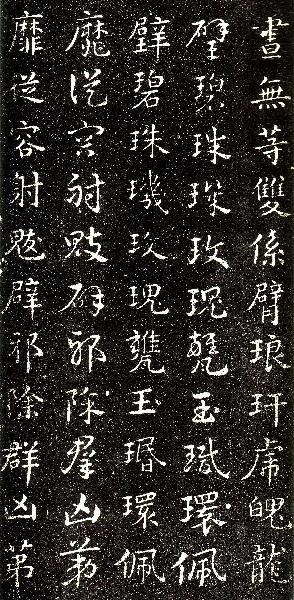 畫無等雙係臂琅玕虎魄龍
璧碧珠璣玫瑰甕玉環佩
璧碧珠璣玫瑰甕玉環佩
靡從容射魃辟邪除羣凶第
靡從容射魃辟邪除群凶第